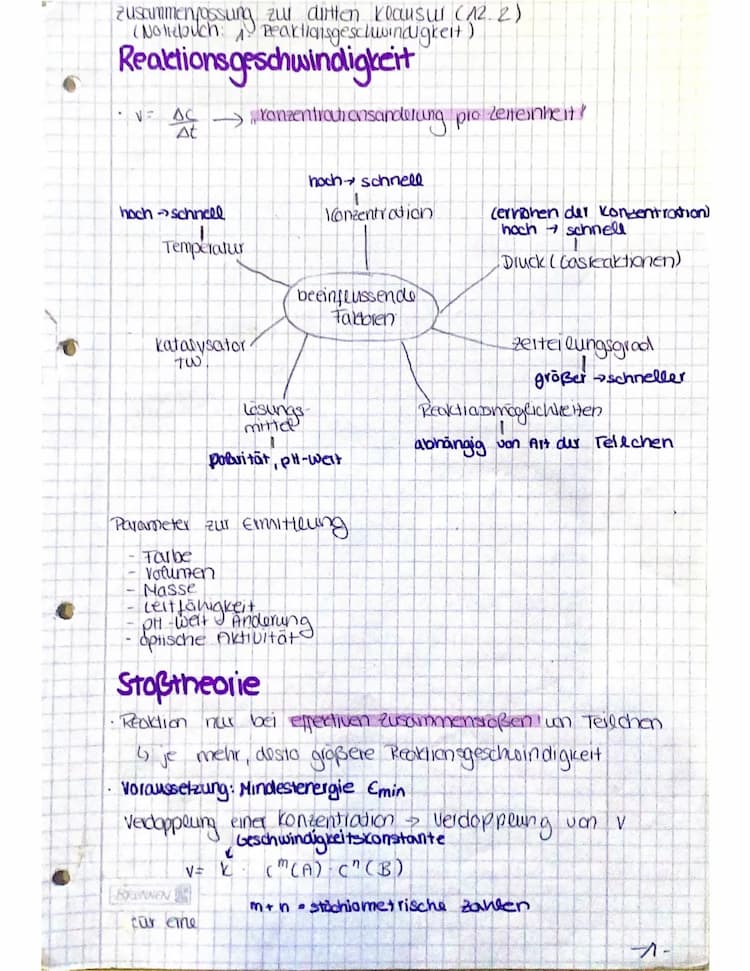 Zusammenfassung zur dritten Klausur (12.2)
(Notizbuch: 1) Reaktionsgeschwindigkeit)
Reaktionsgeschwindigkeit
· v = Δc/Δt → „Konzentrationsänderung pro Zeiteinheit"
hoch → schnell
Konzentration
hoch → schnell
Temperatur
(erhöhen der Konzentration)
hoch → schnell
Druck (Gasreaktionen)
beeinflussende
Faktoren
Katalysator
TW
Zerteilungsgrad
größer → schneller
Lösungs-
mittel
Polarität, pH-Wert
Reaktionsmöglichkeiten
abhängig von Art der Teilchen
Parameter zur Ermittlung
- Farbe
- Volumen
- Masse
- Leitfähigkeit
- pH-Wert Änderung
- optische Aktivität
Stoßtheorie
· Reaktion nur bei effektiven Zusammenstößen von Teilchen
↳ je mehr, desto größere Reaktionsgeschwindigkeit
· Voraussetzung: Mindestenergie Emin
Verdopplung einer Konzentration → Verdopplung von v
Geschwindigkeitskonstante
v = k · c^m(A) · c^n(B)
m + n = stöchiometrische Zahlen
für eine
-1-